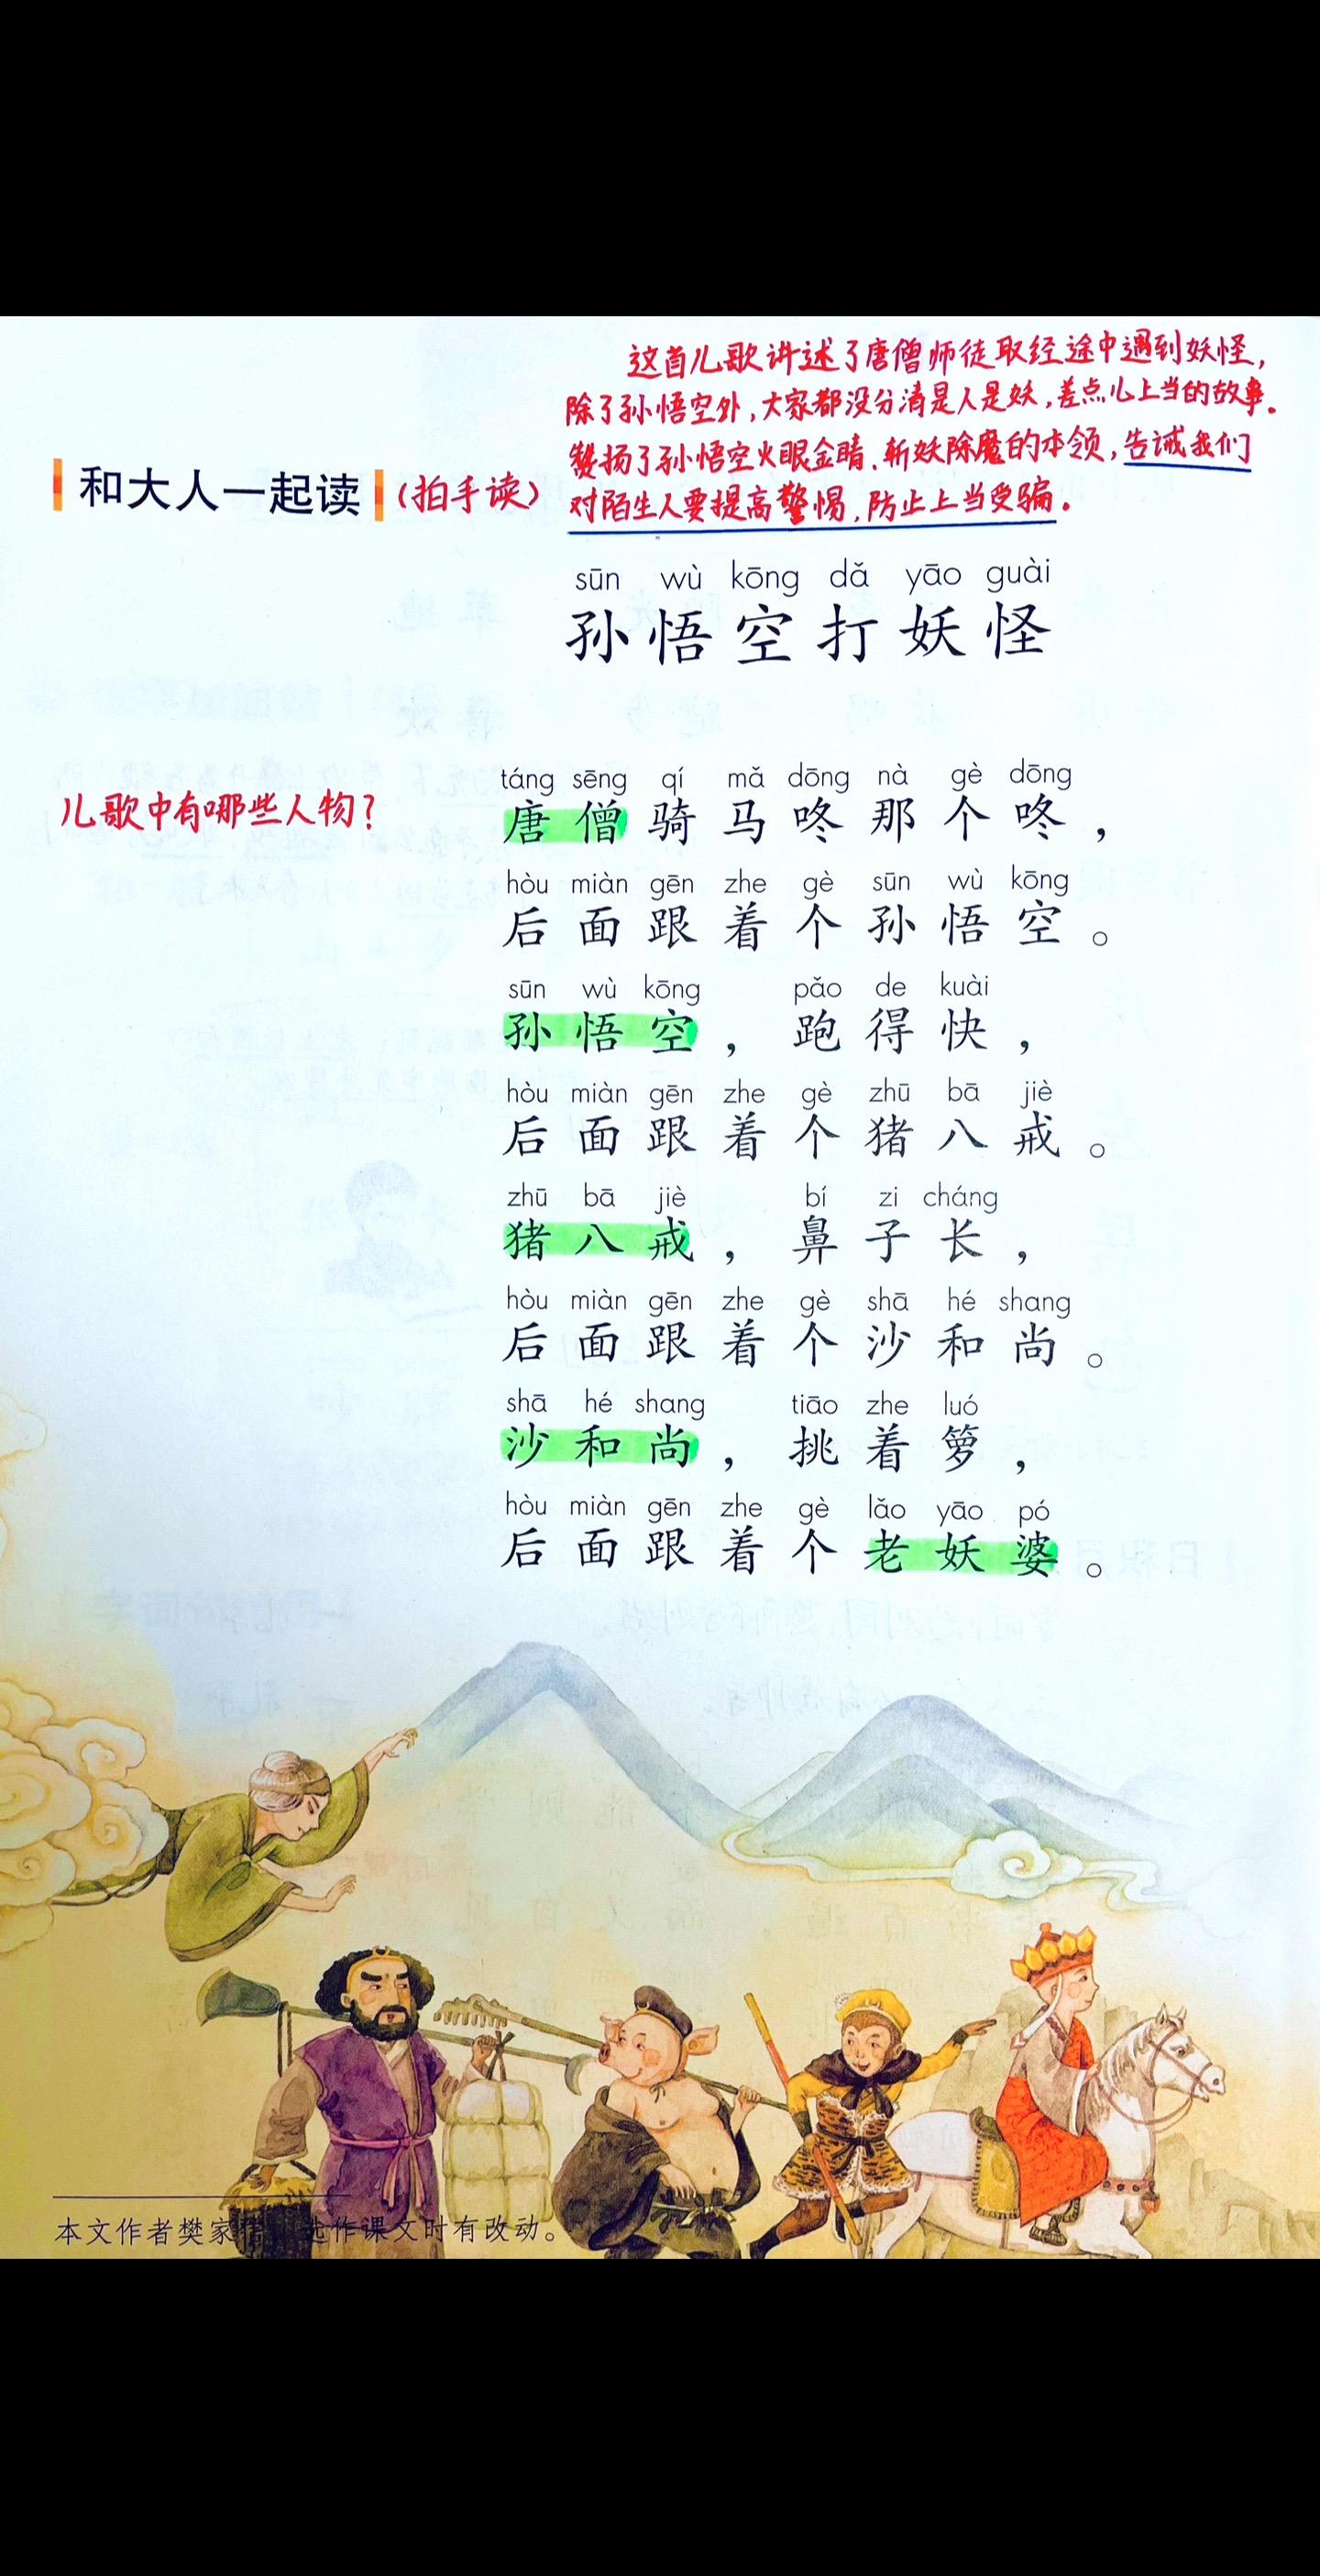 这首儿歌讲述了唐僧师徒取经途中遇到妖怪，
除了孙悟空外，大家都没分清是人是妖，差点儿上当的故事。
赞扬了孙悟空火眼金睛、斩妖除魔的本领，告诫我们
对陌生人要提高警惕，防止上当受骗。
和大人一起读（拍手读）
sūn wù kōng dǎ yāo guài
孙悟空打妖怪
儿歌中有哪些人物？
táng sēng qí mǎ dōng nà gè dōng
唐僧骑马咚那个咚，
hòu miàn gēn zhe gè sūn wù kōng
后面跟着个孙悟空。
sūn wù kōng pǎo de kuài
孙悟空，跑得快，
hòu miàn gēn zhe gè zhū bā jiè
后面跟着个猪八戒。
zhū bā jiè bí zi cháng
猪八戒，鼻子长，
hòu miàn gēn zhe gè shā hé shang
后面跟着个沙和尚。
shā hé shang tiāo zhe luó
沙和尚，挑着箩，
hòu miàn gēn zhe gè lǎo yāo pó
后面跟着个老妖婆。
本文作者樊家 选作课文时有改动。